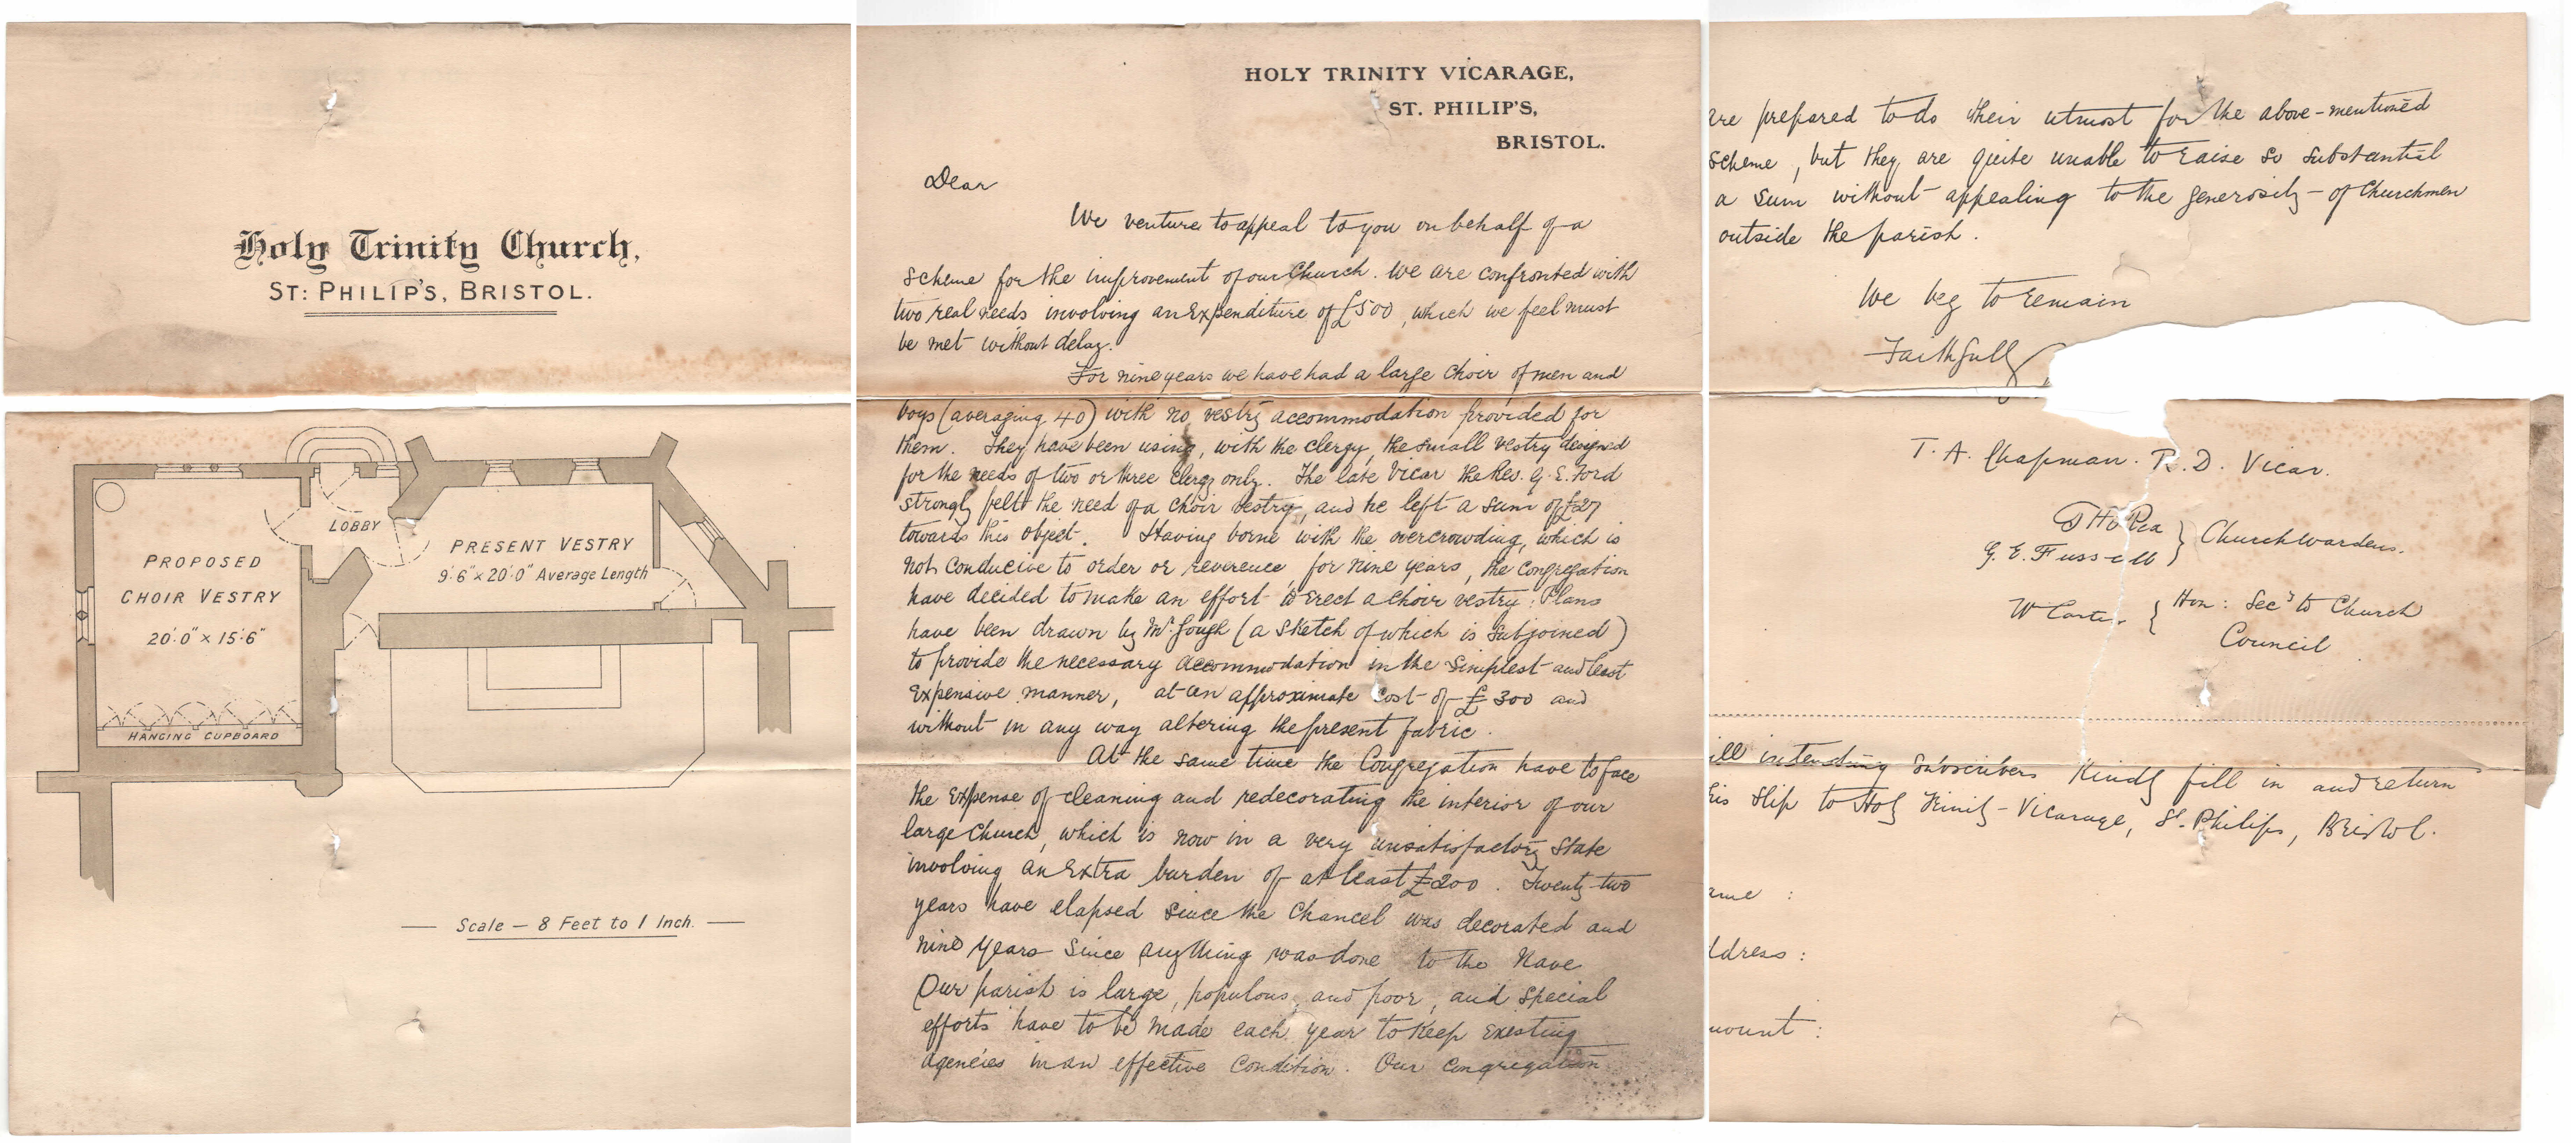 Holy Trinity Church,
ST: PHILIP'S, BRISTOL.
LOBBY
PROPOSED
CHOIR VESTRY
20'.0" × 15'.6"
PRESENT VESTRY
9'.6" × 20'.0" Average Length
HANGING CUPBOARD
Scale — 8 Feet to 1 Inch.
HOLY TRINITY VICARAGE,
ST. PHILIP'S,
BRISTOL.
Dear
We venture to appeal to you on behalf of a
scheme for the improvement of our Church. We are confronted with
two real needs involving an Expenditure of £500, which we feel must
be met without delay.
For nine years we have had a large choir of men and
boys (averaging 40) with no vestry accommodation provided for
them. They have been using, with the clergy, the small vestry designed
for the needs of two or three clergy only. The late Vicar the Rev. G. E. Ford
strongly felt the need of a choir vestry, and he left a sum of £27
towards this object. Having borne with the overcrowding, which is
not conducive to order or reverence, for nine years, the congregation
have decided to make an effort to erect a choir vestry. Plans
have been drawn by Mr. Gough (a sketch of which is subjoined)
to provide the necessary accommodation in the simplest and least
Expensive manner, at an approximate cost of £300 and
without in any way altering the present fabric.
At the same time the Congregation have to face
the Expense of cleaning and redecorating the interior of our
large Church, which is now in a very unsatisfactory state
involving an Extra burden of at least £200. Twenty-two
years have elapsed since the Chancel was decorated and
nine years since anything was done to the Nave
Our parish is large, populous, and poor, and special
efforts have to be made each year to keep existing
agencies in an effective condition. Our Congregation
are prepared to do their utmost for the above-mentioned
scheme, but they are quite unable to raise so substantial
a sum without appealing to the generosity of Churchmen
outside the parish.
We beg to remain
Faithfully
T. A. Chapman. R. D. Vicar.
G. E. Fussell } Churchwardens.
W Carter { Hon: Secy to Church
Council
ill intending subscribers kindly fill in and return
his slip to Holy Trinity Vicarage, St. Philips, Bristol.
ame :
ddress :
mount :